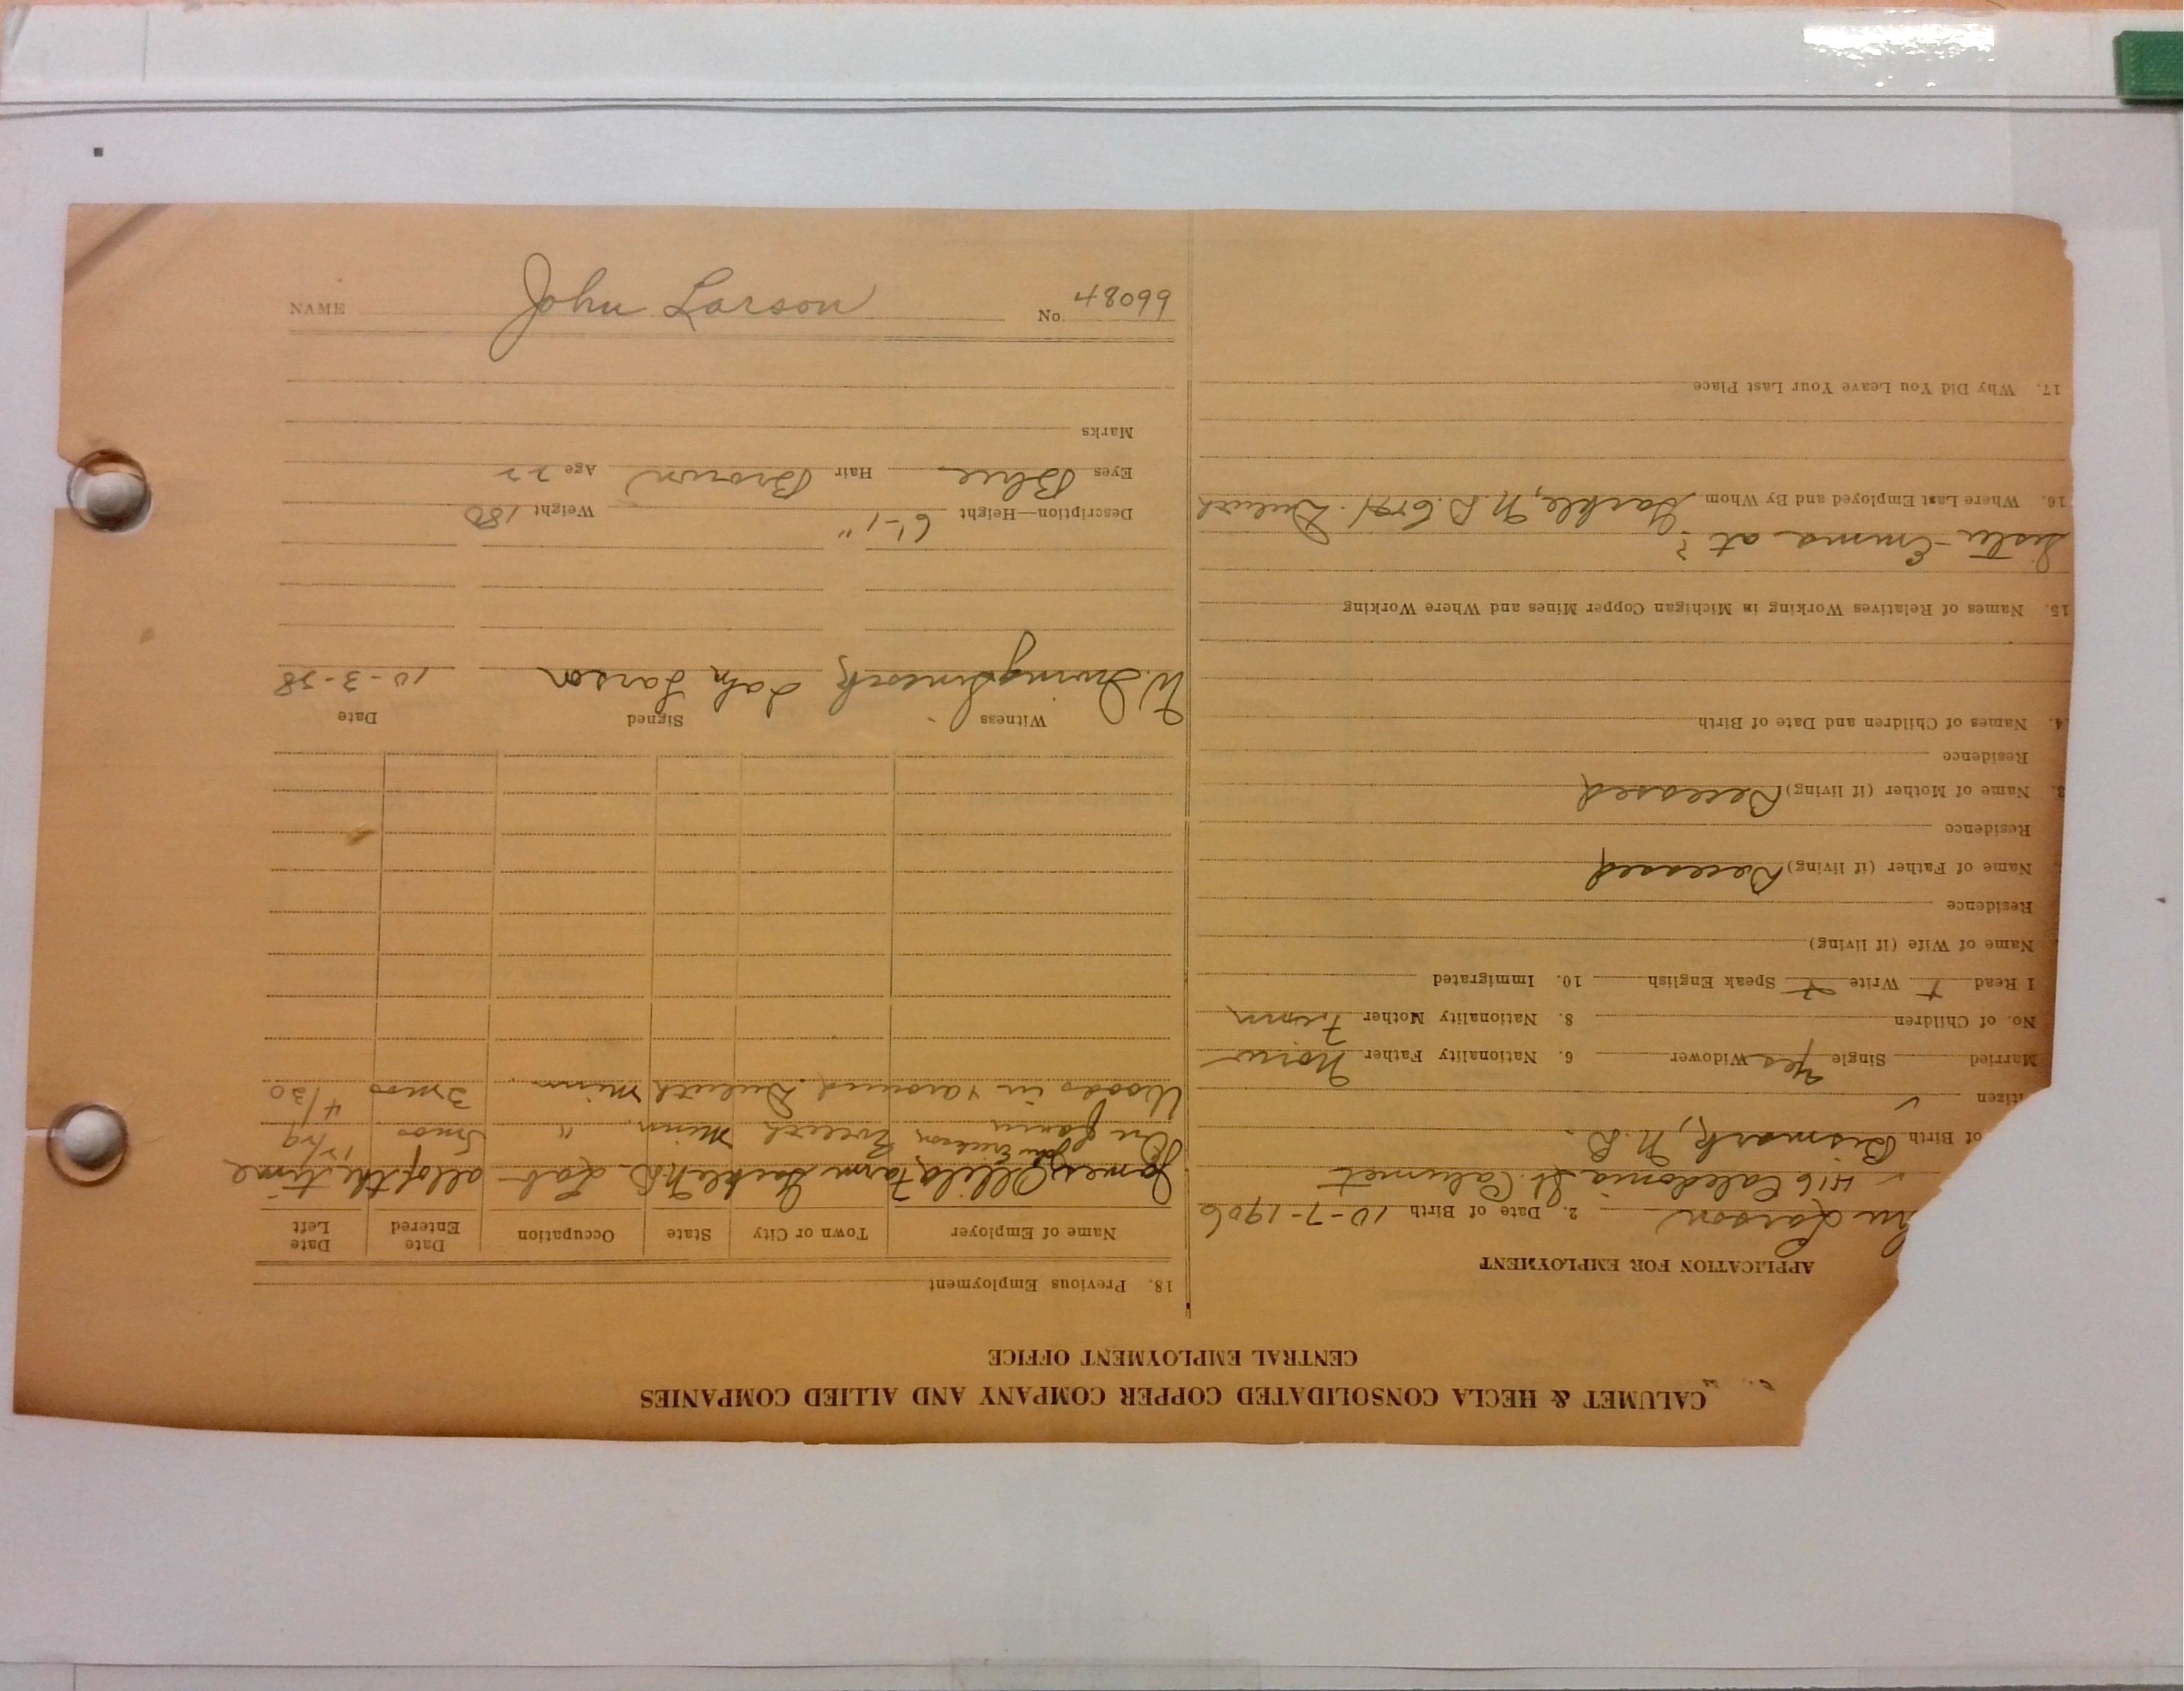 NAME John Larson No. 48099
CALUMET & HECLA CONSOLIDATED COPPER COMPANY AND ALLIED COMPANIES
CENTRAL EMPLOYMENT OFFICE
APPLICATION FOR EMPLOYMENT
hn Larson 2. Date of Birth 10-7-1906
416 Caledonia St. Calumet
of Birth Bismark, N.D.
itizen ✓
Married Single yes Widower 6. Nationality Father Norw
No. of Children 8. Nationality Mother Finn
I Read + Write + Speak English 10. Immigrated
Name of Wife (if living)
Residence
Name of Father (if living) Deceased
Residence
3. Name of Mother (if living) Deceased
Residence
4. Names of Children and Date of Birth
15. Names of Relatives Working in Michigan Copper Mines and Where Working
Sister - Emma at ?
16. Where Last Employed and By Whom N.D. Duluth
17. Why Did You Leave Your Last Place
18. Previous Employment
Name of Employer Town or City State Occupation Date Entered Date Left
James Ollila Farm N.D. Lab all of the time
John Erickson
On farm Duluth Minn. " 5 mos
Woods in & around Duluth Minn. 3 mos 4/30
Witness Signed Date
W. Irving John Larson 10-3-38
Description—Height 6'-1" Weight 180
Eyes Blue Hair Brown Age
Marks